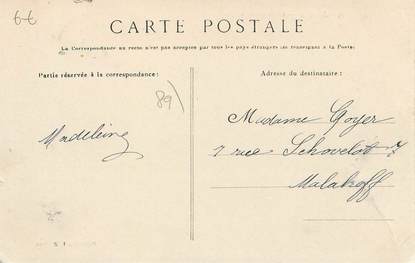 6-6
CARTE POSTALE
La Correspondance au recto n'est pas acceptée par tous les pays étrangers (se renseigner à la Poste)
Partie réservée à la correspondance:
Adresse du destinataire:
89)
Madame Goyer
7 rue
Malakoff
Madeleine